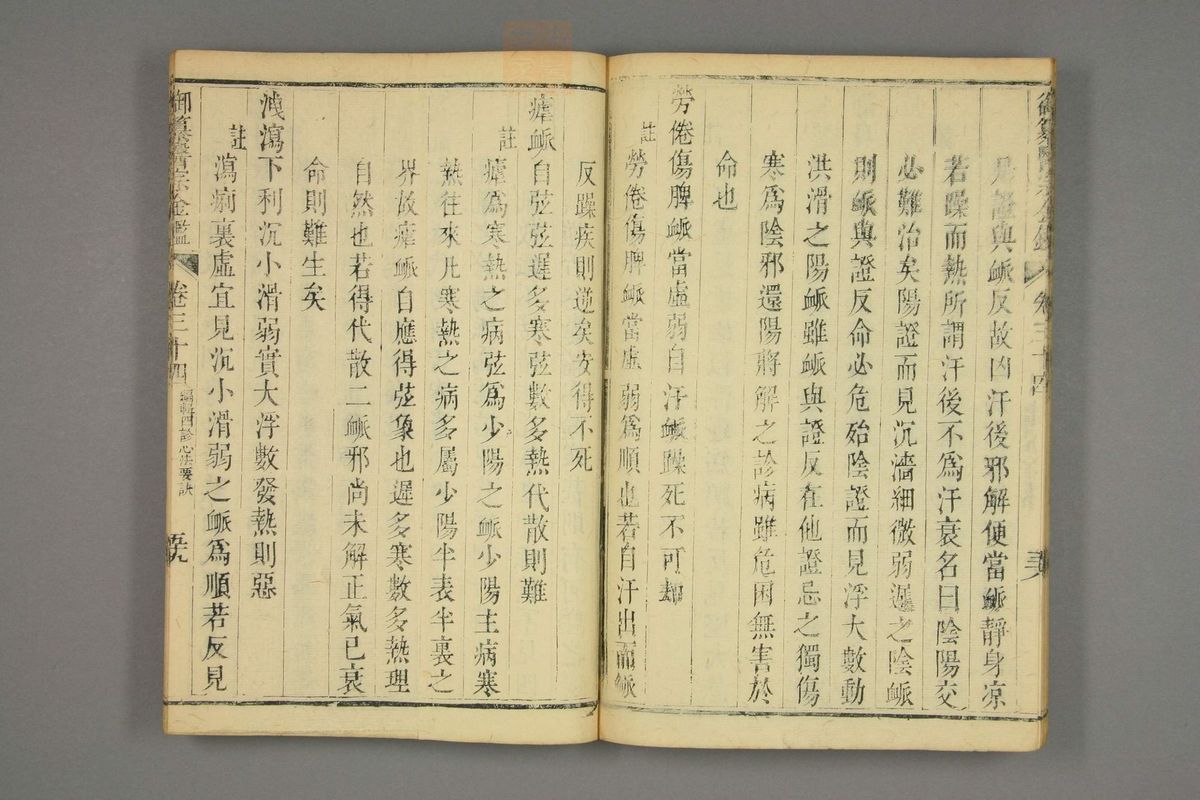 御纂醫宗金鑑 卷三十四
凡證與脈反故凶汗後邪解便當脈靜身凉
若躁而熱所謂汗後不爲汗衰名曰陰陽交
必難治矣陽證而見沉濇細微弱遲之陰脈
則脈與證反命必危殆陰證而見浮大數動
洪滑之陽脈雖脈與證反在他證忌之獨傷
寒爲陰邪還陽將解之診病雖危困無害於
命也
勞倦傷脾脈當虛弱自汗脈躁死不可却
註
勞倦傷脾脈當虛弱爲順也若自汗出而脈
反躁疾則逆矣安得不死
瘧脈自弦弦遲多寒弦數多熱代散則難
註
瘧爲寒熱之病弦爲少陽之脈少陽主病寒
熱往來凡寒熱之病多屬少陽半表半裏之
界故瘧脈自應得弦象也遲多寒數多熱理
自然也若得代散二脈邪尚未解正氣已衰
命則難生矣
洩瀉下利沉小滑弱實大浮數發熱則惡
註
瀉痢裏虛宜見沉小滑弱之脈爲順若反見
御纂醫宗金鑑 卷三十四 編輯四診心法要訣